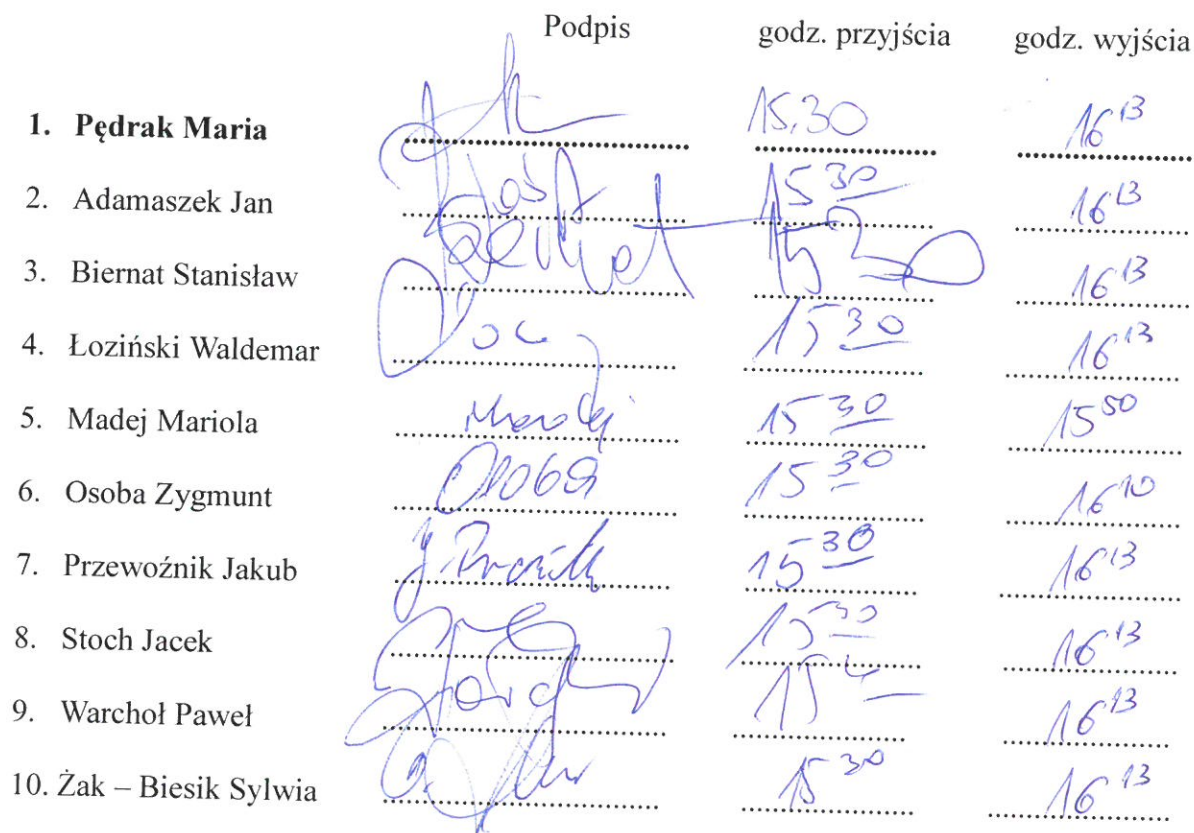 Podpis godz. przyjścia godz. wyjścia
1. Pędrak Maria 15.30 16 13
2. Adamaszek Jan 15 30 16 13
3. Biernat Stanisław 16 13
4. Łoziński Waldemar 15 30 16 13
5. Madej Mariola Madej 15 30 15 50
6. Osoba Zygmunt Osoba 15 30 16 10
7. Przewoźnik Jakub 15 30 16 13
8. Stoch Jacek 15 30 16 13
9. Warchoł Paweł 16 13
10. Żak – Biesik Sylwia 15 30 16 13